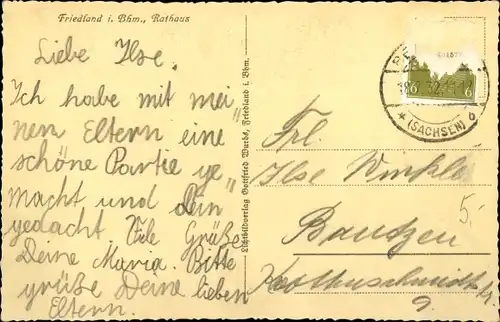 Friedland i. Bhm., Rathaus
Liebe Ilse.
Ich habe mit mei„
nen Eltern eine
schöne Partie ge„
macht und an Dein
gedacht. Viele Grüße
Deine Maria. Bitte
grüße Deine lieben
Eltern.
Lichtbildverlag Gottfried Wurbs, Friedland i. Bhm.
32
(SACHSEN)
6 6
Frl.
Ilse Winkler
5.-
Bautzen